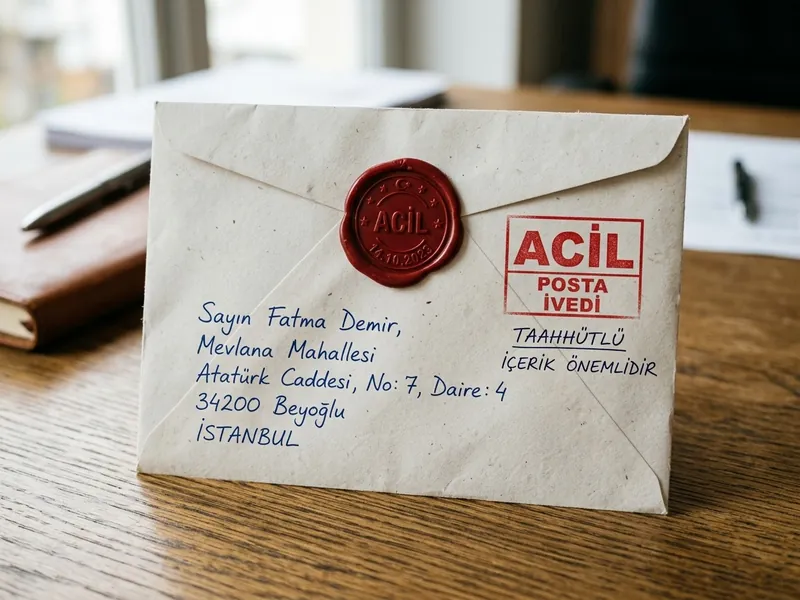 ACİL
14.10.2023
ACİL
POSTA
İVEDİ
TAAHHÜTLÜ
İÇERİK ÖNEMLİDİR
Sayın Fatma Demir,
Mevlana Mahallesi
Atatürk Caddesi, No: 7, Daire: 4
34200 Beyoğlu
İSTANBUL